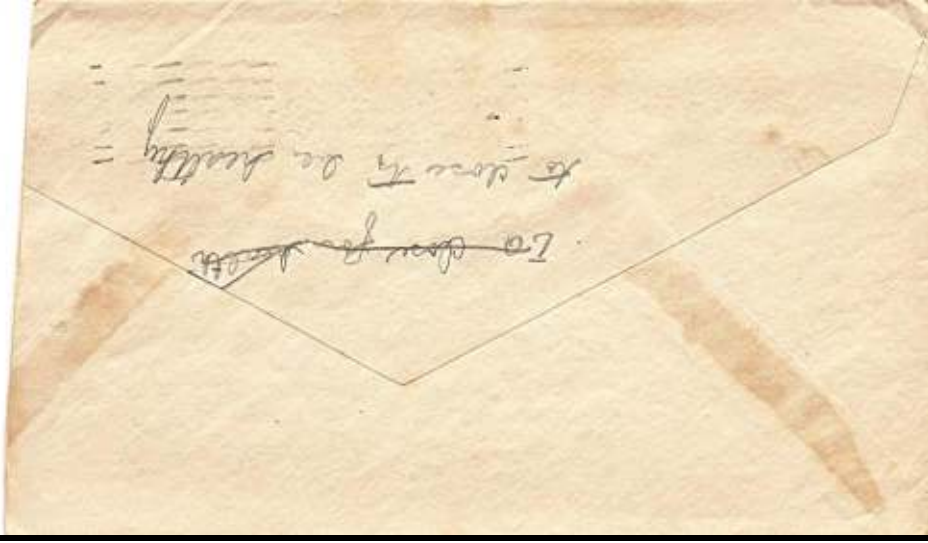 To close for health
to close to be healthy